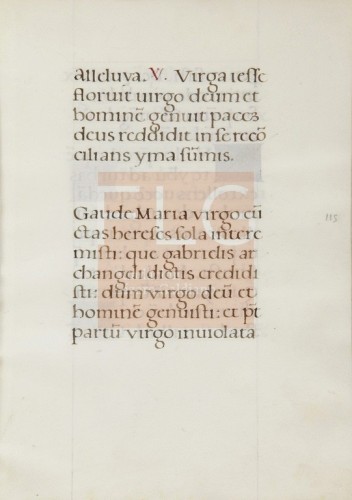 alleluya. V. Virga iesse
floruit uirgo deum et
hominē genuit pacez
deus reddidit in se recō
cilians yma sūmis.
Gaude Maria virgo cū
ctas hereses sola intere
misti: que gabrielis ar
changeli dictis credidi
sti: dum virgo deū et
hominē genuisti: et pt̄
partū virgo inuiolata
115
TLC